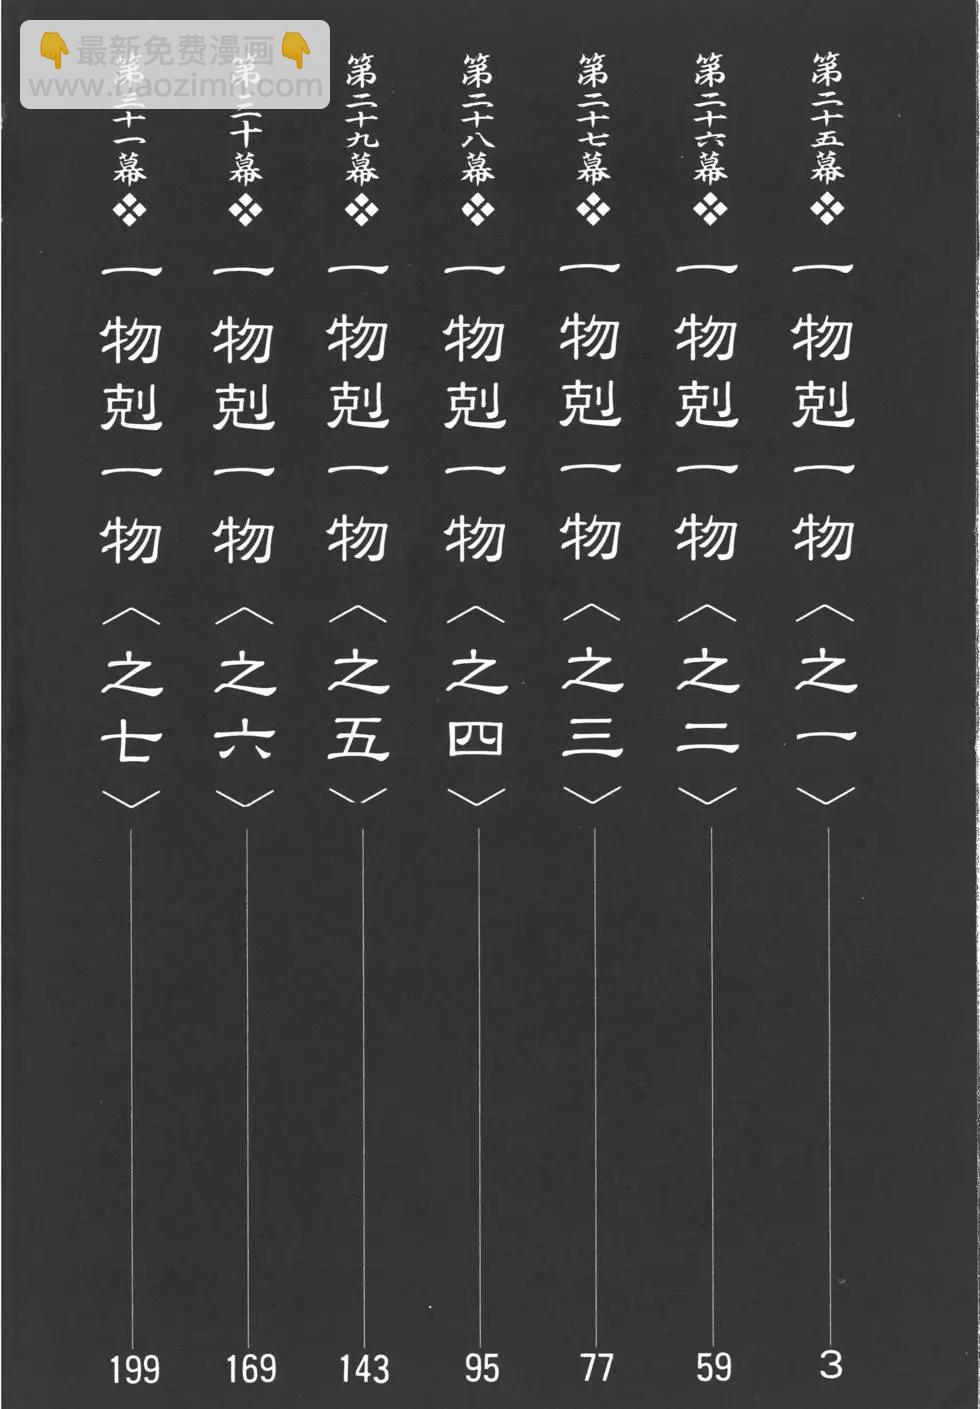 最新免费漫画
www.baozimh.com
第二十五幕❖一物剋一物〈之一〉 3
第二十六幕❖一物剋一物〈之二〉 59
第二十七幕❖一物剋一物〈之三〉 77
第二十八幕❖一物剋一物〈之四〉 95
第二十九幕❖一物剋一物〈之五〉 143
第三十幕❖一物剋一物〈之六〉 169
第三十一幕❖一物剋一物〈之七〉 199